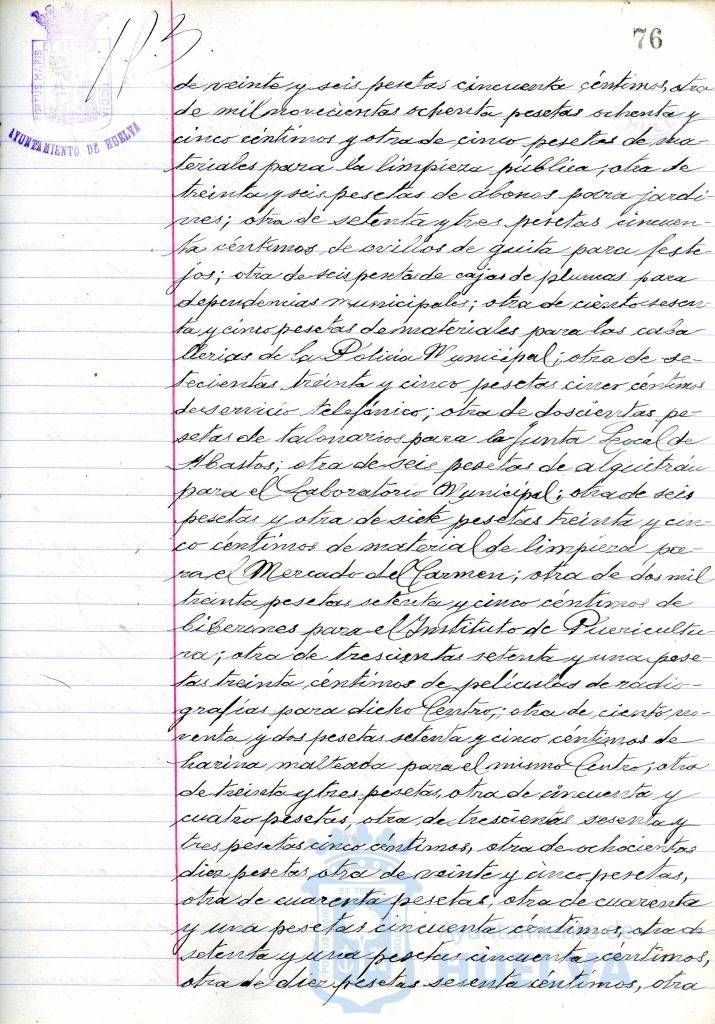 76
ET TERRA
PORTUS MARIS
CUSTODIA
AYUNTAMIENTO DE HUELVA
de veinte y seis pesetas cincuenta céntimos, otra
de mil novecientas ochenta pesetas ochenta y
cinco céntimos y otra de cinco pesetas de ma-
teriales para la limpieza pública; otra de
treinta y seis pesetas de abonos para jardi-
nes; otra de setenta y tres pesetas cincuen-
ta céntimos de ovillos de guita para feste-
jos; otra de seis peseta de cajas de plumas para
dependencias municipales; otra de ciento sesen-
ta y cinco pesetas de materiales para las caba-
llerias de la Policia Municipal; otra de se-
tecientas treinta y cinco pesetas cinco céntimos
de servicio telefónico; otra de doscientas pe-
setas de talonarios para la Junta Local de
Abastos; otra de seis pesetas de alquitrán
para el Laboratorio Municipal; otra de seis
pesetas y otra de siete pesetas treinta y cin-
co céntimos de material de limpieza pa-
ra el Mercado del Carmen; otra de dos mil
treinta pesetas setenta y cinco céntimos de
biberones para el Instituto de Puericultu-
ra; otra de trescientas setenta y una pese-
tas treinta céntimos de películas de radio-
grafías para dicho Centro; otra de ciento no-
venta y dos pesetas setenta y cinco céntimos de
harina malteada para el mismo Centro; otra
de treinta y tres pesetas, otra de cincuenta y
cuatro pesetas, otra de trescientas sesenta y
tres pesetas cinco céntimos, otra de ochocientas
diez pesetas, otra de veinte y cinco pesetas,
otra de cuarenta pesetas, otra de cuarenta
y una pesetas cincuenta céntimos, otra de
setenta y una pesetas cincuenta céntimos,
otra de diez pesetas sesenta céntimos, otra
Ayuntamiento de
HUELVA